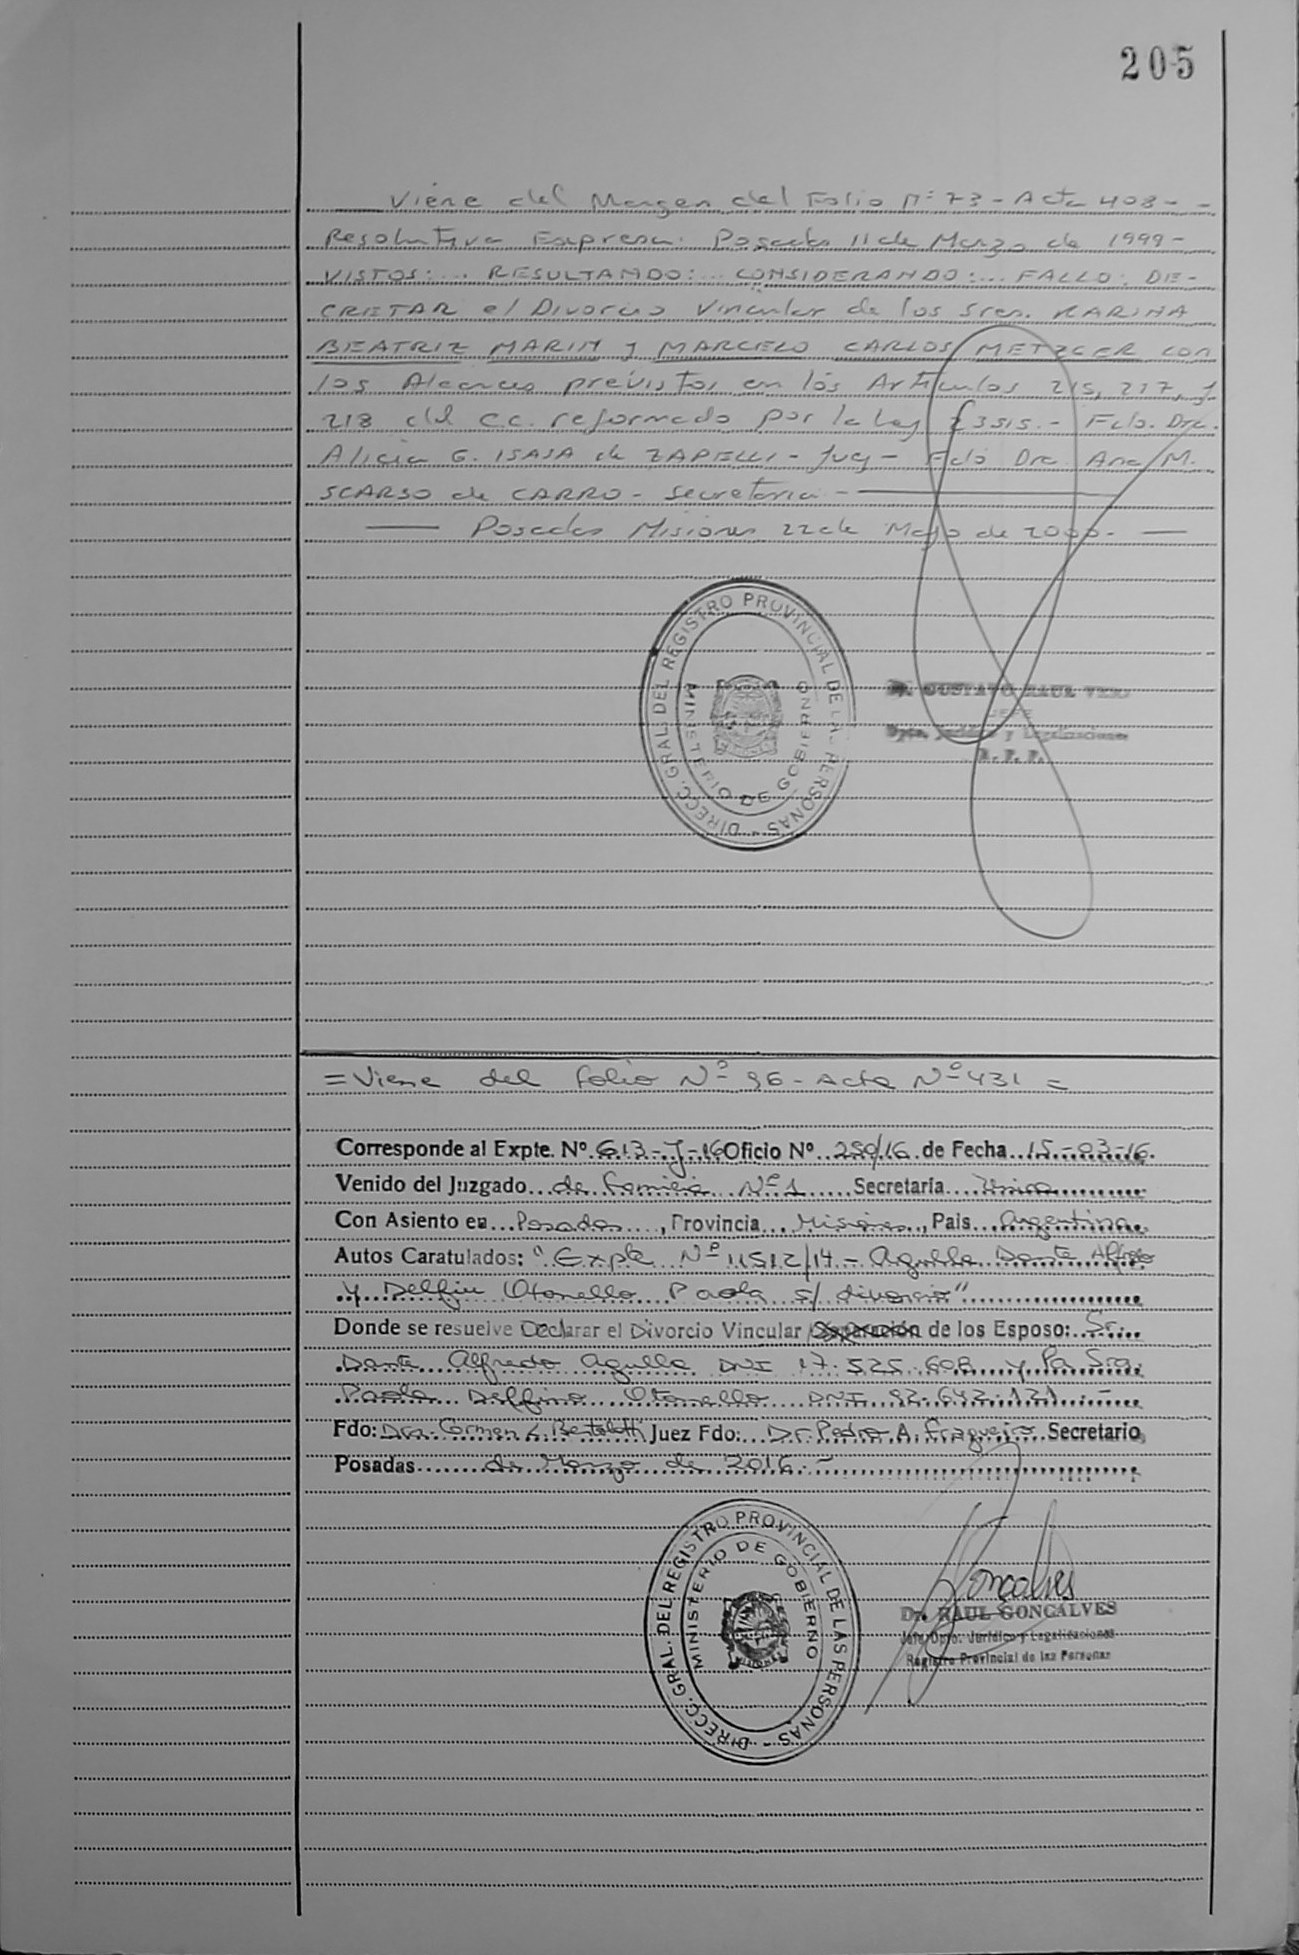 205
Viene del Margen del Folio Nº 73 - Acta 408 - -
Resolutiva Expresa: Posadas 11 de Marzo de 1999 -
VISTOS: ... RESULTANDO: ... CONSIDERANDO: ... FALLO: DE-
CRETAR el Divorcio Vincular de los Sres. KARINA
BEATRIZ MARIN y MARCELO CARLOS METZGER con
los Alcances previstos en los Artículos 215, 217, y
218 del C.C. reformado por la Ley 23515. - Fdo. Dra.
Alicia G. ISASA de ZAPELLI - Juez - Fdo Dra. Ana M.
SCARSO de CARRO - Secretaria -
Posadas Misiones 22 de Mayo de 2000. -
DIRECC. GRAL. DEL REGISTRO PROVINCIAL DE LAS PERSONAS -
MINISTERIO DE GOBIERNO
Dr. GUSTAVO RAUL
JEFE
Dpto. Jurídico y Legalizaciones
R. P. P.
= Viene del folio Nº 96 - Acta Nº 431 =
Corresponde al Expte. Nº 613-J-16 Oficio Nº 250/16 de Fecha 15-03-16.
Venido del Juzgado de Familia Nº 1 Secretaría Única
Con Asiento en Posadas, Provincia Misiones, Pais Argentina
Autos Caratulados: "Expte Nº 11512/14 - Agulla Dante Alfredo
y Delfin Otonello Paola s/ divorcio"
Donde se resuelve Declarar el Divorcio Vincular Separación de los Esposo: Sr.
Dante Alfredo Agulla DNI 17.525.608 y la Sra.
Paola Delfino Otonello DNI 92.642.121. -
Fdo: Dra. Carmen L. Bertolotti Juez Fdo: Dr. Pedro A. Fragueiro Secretario
Posadas de Marzo de 2016. -
DIRECC. GRAL. DEL REGISTRO PROVINCIAL DE LAS PERSONAS -
MINISTERIO DE GOBIERNO
MISIONES
Goncalves
Dr. RAUL GONCALVES
Jefe Dpto. Jurídico y Legalizaciones
Registro Provincial de las Personas